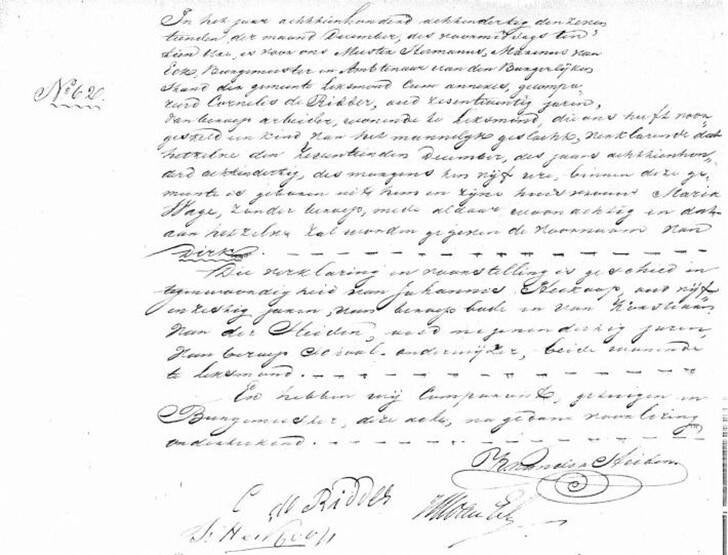 In het jaar achttienhonderd achtendertig den zeven
tienden der maand December, des voormiddags tien
uur, is voor ons Meester Hermanus, Marinus van
Eck, Burgemeester en Ambtenaar van den Burgerlijken
Stand der gemeente Leksmond Cum annexis, gecompa-
reerd Cornelis de Ridder, oud zesentwintig jaren,
N.o 62.
van beroep arbeider, wonende te Leksmond, die ons heeft voor-
gesteld een kind van het mannelijk geslacht, verklarende dat
hetzelve den zeventienden December, des jaars achttienhon-
derd achtendertig, des morgens ten vijf ure, binnen deze ge-
meente is geboren uit hem en zijne huisvrouw Maria
Hage, zonder beroep, mede aldaar woonachtig en dat
aan hetzelve zal worden gegeven de voornaam van
Dirk.
Die verklaring en voorstelling is geschied in
tegenwoordigheid van Johannes Heikoop, oud vijf
en zestig jaren, van beroep bode en van Korstiaan
van der Heiden, oud negenendertig jaren,
van beroep onderwijzer, beide wonende
te Leksmond.
En hebben wij Comparant, getuigen en
Burgemeester, deze acte, na gedane voorlezing
onderteekend.
K van der Heiden
C de Ridder
HMvan Eck
J. Heikoop